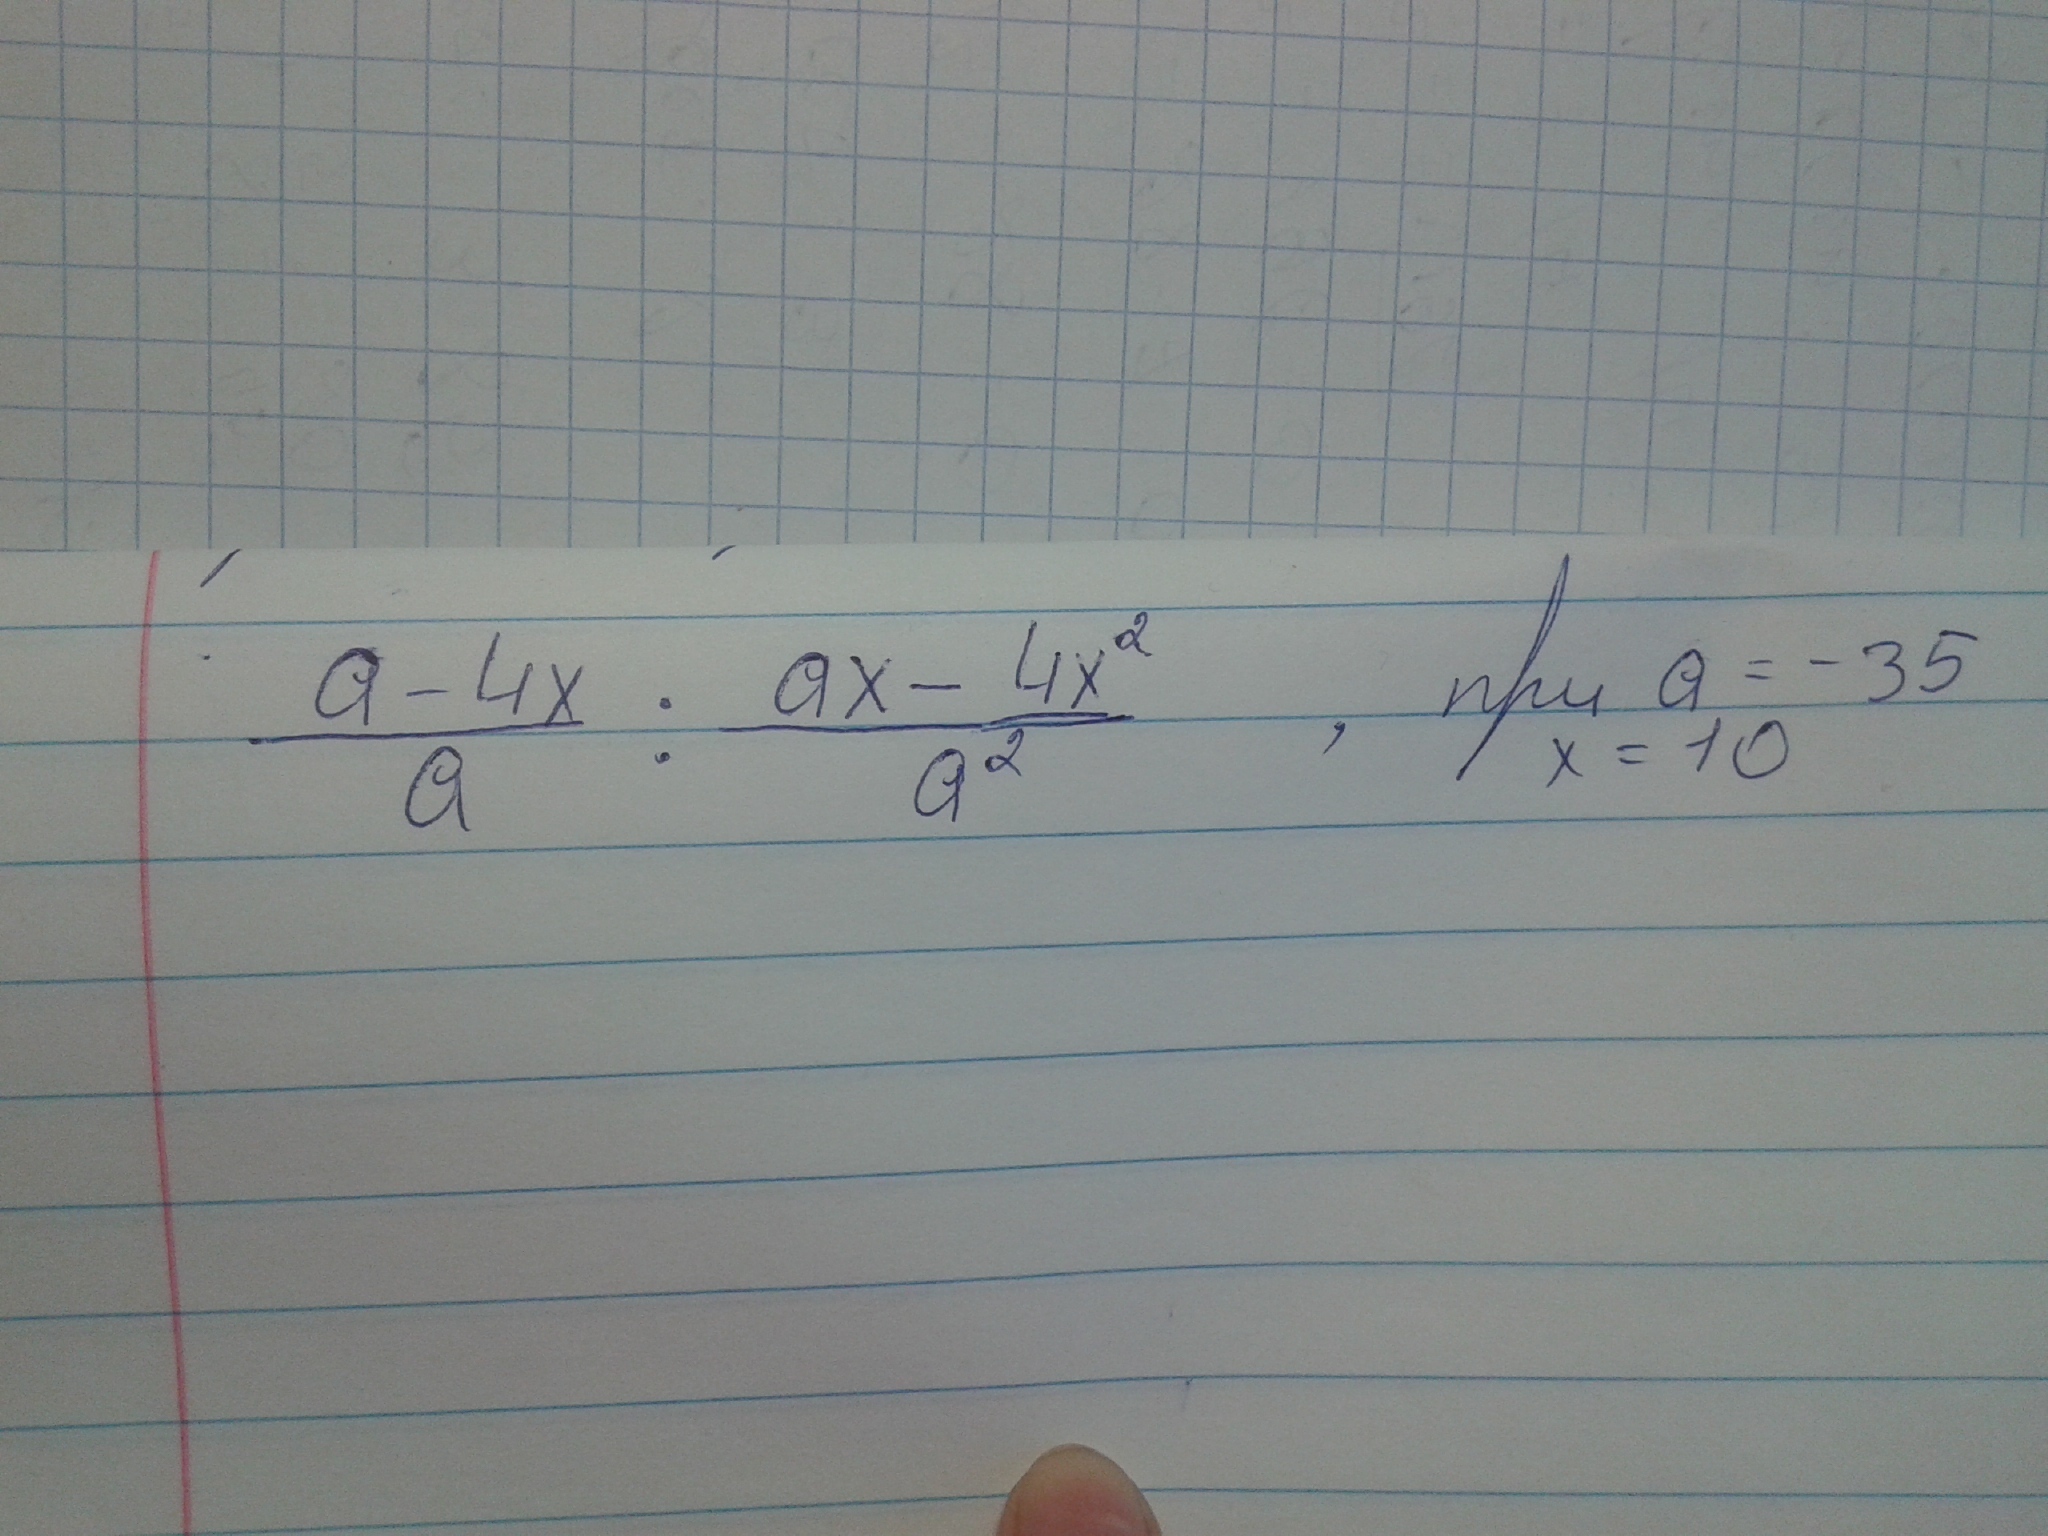 a - 4x / a : ax - 4x² / a² , при a = -35
x = 10